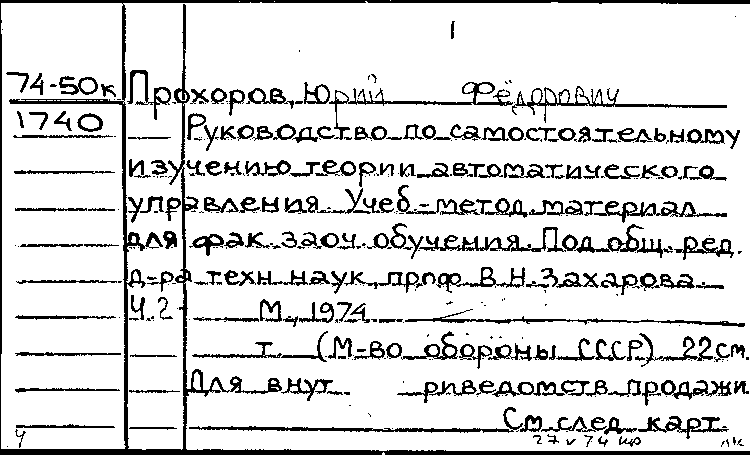 1
74-50к Прохоров, Юрий Фёдорович
1740 Руководство по самостоятельному
изучению теории автоматического
управления. Учеб.-метод. материал
для фак. заоч. обучения. Под общ. ред.
д-ра техн. наук, проф. В.Н. Захарова.
Ч.2- М., 1974
т. (М-во обороны СССР) 22см.
Для внут риведомств. продажи
См. след. карт.
4 27 v 74 лк